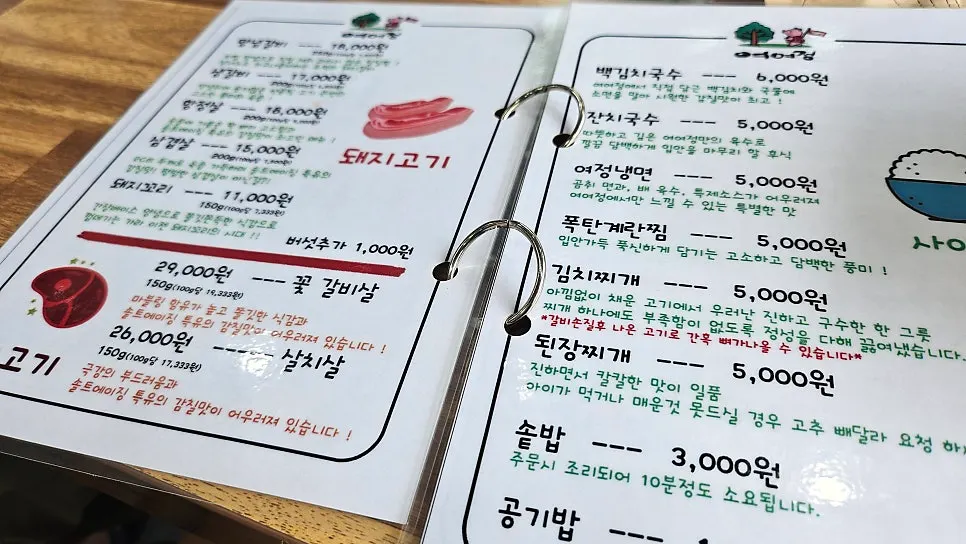 여여정
양념갈비 --- 18,000원
삼갈비 --- 17,000원
항정살 --- 18,000원
삼겹살 --- 15,000원
200g(100g당 7,500원)
돼지고기
돼지꼬리 --- 11,000원
150g(100g당 7,333원)
껍데기는 가라 이젠 돼지꼬리의 시대 !!
버섯추가 1,000원
29,000원 --- 꽃 갈비살
150g(100g당 19,333원)
마블링 함유가 높고 쫄깃한 식감과
솔트에이징 특유의 감칠맛이 어우러져 있습니다 !
26,000원 ----- 살치살
150g(100g당 17,333원)
극강의 부드러움과
솔트에이징 특유의 감칠맛이 어우러져 있습니다 !
고기
여여정
백김치국수 --- 6,000원
여여정에서 직접 담근 백김치와 국물에
소면을 말아 시원한 감칠맛이 최고 !
잔치국수 --- 5,000원
따뜻하고 깊은 여여정만의 육수로
깔끔 담백하게 입안을 마무리 할 후식
여정냉면 --- 5,000원
곰취 면과, 배 육수, 특제소스가 어우러져
여여정에서만 느낄 수 있는 특별한 맛
폭탄계란찜 --- 5,000원
입안가득 푹신하게 담기는 고소하고 담백한 풍미 !
김치찌개 --- 5,000원
아낌없이 채운 고기에서 우러난 진하고 구수한 한 그릇
찌개 하나에도 부족함이 없도록 정성을 다해 끓여냈습니다.
*갈비손질후 나온 고기로 간혹 뼈가나올 수 있습니다*
된장찌개 --- 5,000원
진하면서 칼칼한 맛이 일품
아이가 먹거나 매운것 못드실 경우 고추 빼달라 요청
솥밥 --- 3,000원
주문시 조리되어 10분정도 소요됩니다.
공기밥 ---
사이